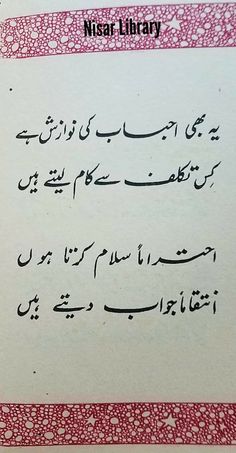 Nisar Library
یہ بھی احباب کی نوازش ہے
کس تکلف سے کام لیتے ہیں
احتراماً سلام کرتا ہوں
انتقاماً جواب دیتے ہیں